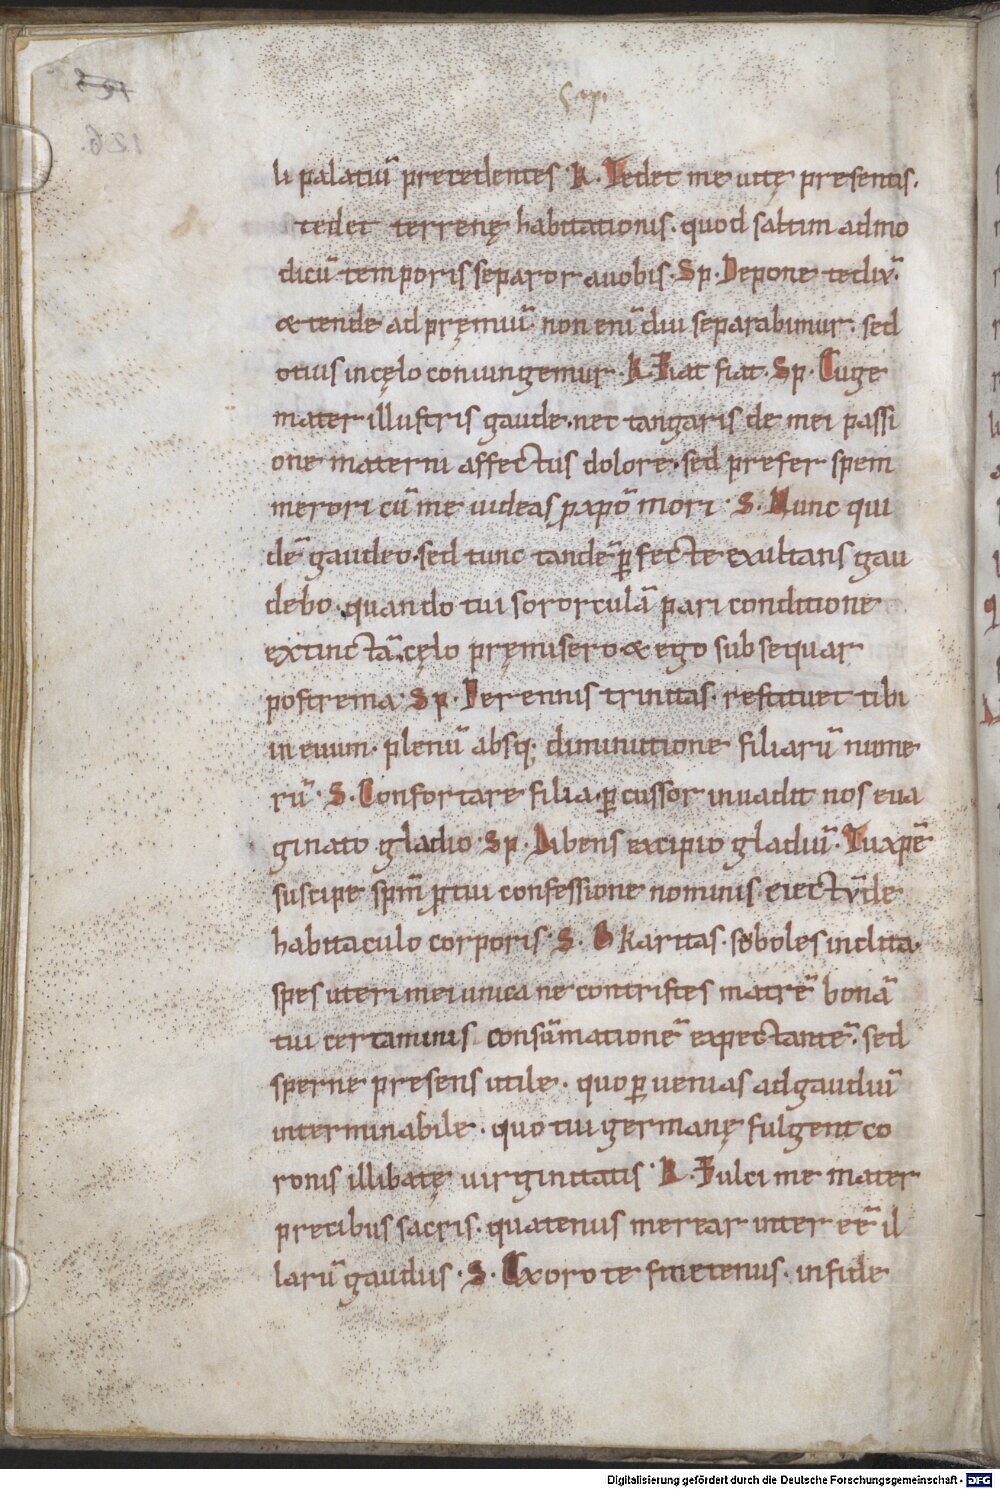 Sapi
126.
li palatiū precedentes K. Tedet me uitę presentis.
tedet terrenę habitationis. quod saltim ad mo
dicū temporis separor a uobis. Sp. Depone tediū.
& tende ad pręmiū. non enī diu separabimur. sed
otius in cęlo coniungemur. K. Fiat fiat. Sp. Euge
mater illustris gaude. nec tangaris de mei passi
one materni affectus dolore. sed prefer spem
merori cū me uideas p xpō mori. S. Nunc qui
dē gaudeo. sed tunc tandē ꝑfecte exultans gau
debo. quando tui sororculā pari conditione
extinctā. cęlo pręmisero & ego subsequar
postrema. Sp. Perennis trinitas. restituet tibi
in euum. plenū absq; diminutione filiarū nume
rū. S. Confortare filia. ꝑcussor inuadit nos eua
ginato gladio. Sp. Libens excipio gladiū. Tu xpē
suscipe spm̄ ꝓ tui confessione nominis eiectū de
habitaculo corporis. S. O karitas. soboles inclita.
spes uteri mei unica ne contristes matrē bonā
tui certaminis consūmationē expectantē. sed
sperne presens utile. quo ꝑuenias ad gaudiū
interminabile. quo tui germanę fulgent co
ronis illibatę uirginitatis. K. Fulci me mater
precibus sacris. quatenus merear inter eē il
larū gaudiis. S. Exoro te finetenus. in fide
Digitalisierung gefördert durch die Deutsche Forschungsgemeinschaft - DFG